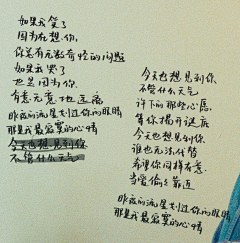 如果我笑了
因为在想你
你总有无数奇怪的问题
如果我哭了
也是因为你
有意无意地逃离
昨夜的流星划过你的眼睛
那是我最寂寞的心情
今天也想见到你
不管什么天气
今天也想见到你
不管什么天气
许下的那些心愿
等你揭开谜底
今天也想见到你
谁也无法代替
希望你同样有意
当爱偷偷靠近
昨夜的流星划过你的眼睛
那是我最寂寞的心情